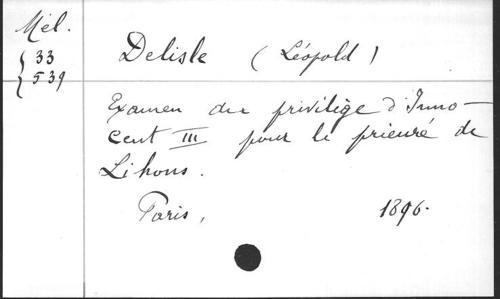 Mél.
33
539
Delisle (Léopold)
Examen du privilège d'Inno-
cent III pour le prieuré de
Lihons.
Paris, 1896.